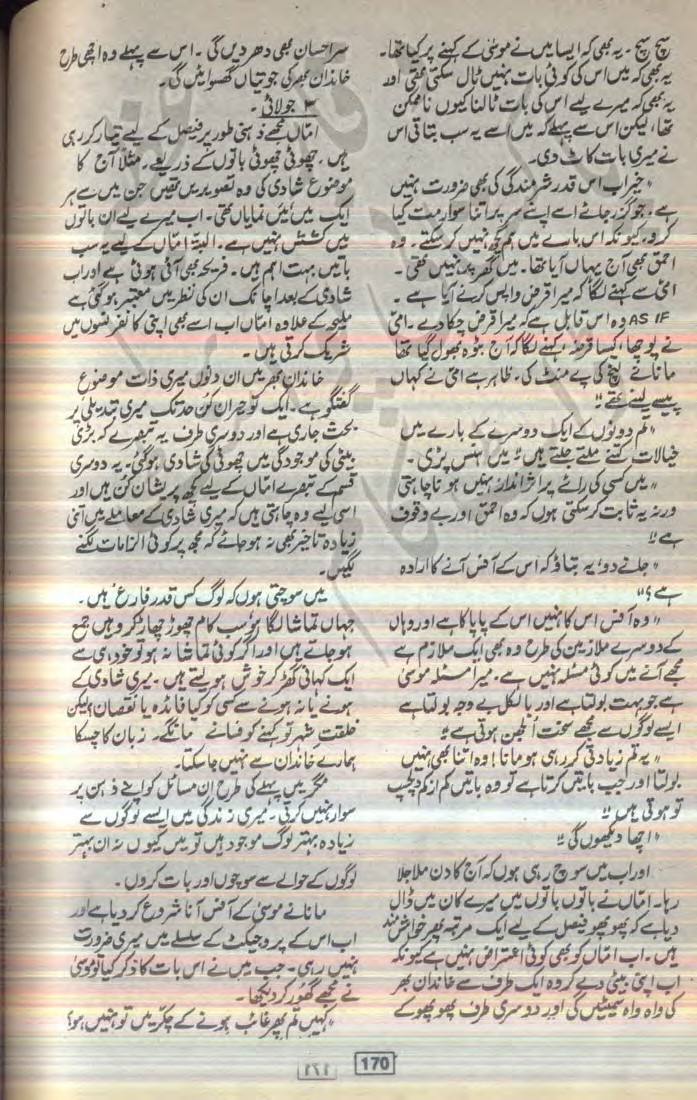 سچ سچ۔ یہ بھی کہ ایسا میں نے موسیٰ کے کہنے پر کیا تھا۔
یہ بھی کہ میں اس کی کوئی بات نہیں ٹال سکتی تھی اور
یہ بھی کہ میرے لیے اس کی بات ٹالنا کیوں ناممکن
تھا، لیکن اس سے پہلے کہ میں اسے یہ سب بتاتی اس
نے میری بات کاٹ دی۔
"خیر اب اس قدر شرمندگی کی بھی ضرورت نہیں
ہے۔ جو گزر جائے اسے اپنے سر پر اتنا سوار مت کیا
کرو، کیونکہ اس بارے میں ہم کچھ نہیں کر سکتے۔ وہ
احمق بھی آج یہاں آیا تھا۔ میں گھر پہ نہیں تھی۔
امی سے کہنے لگا کہ میرا قرض واپس کرنے آیا ہے۔
AS IF وہ اس قابل ہے کہ میرا قرض چکا دے۔ امی
نے پوچھا، کیسا قرضہ، کہنے لگا کہ آج بٹوہ بھول گیا تھا
مانا نے لنچ کی پے منٹ کی۔ ظاہر ہے امی نے کہاں
پیسے لینے تھے"
"تم دونوں کے ایک دوسرے کے بارے میں
خیالات کتنے ملتے جلتے ہیں" میں ہنس پڑی۔
"میں کسی کی رائے پر اثر انداز نہیں ہونا چاہتی
ورنہ یہ ثابت کر سکتی ہوں کہ وہ احمق اور بے وقوف
ہے"
"جانے دو، یہ بتاؤ کہ اس کے آفس آنے کا ارادہ
ہے؟"
"وہ آفس اس کا نہیں اس کے پاپا کا ہے اور وہاں
کے دوسرے ملازمین کی طرح وہ بھی ایک ملازم ہے
مجھے آنے میں کوئی مسئلہ نہیں ہے۔ میرا مسئلہ موسیٰ
ہے جو بہت بولتا ہے اور بالکل بے وجہ بولتا ہے
ایسے لوگوں سے مجھے سخت الجھن ہوتی ہے"
"یہ تم زیادتی کر رہی ہو مانا! وہ اتنا بھی نہیں
بولتا اور جب باتیں کرتا ہے تو وہ باتیں کم از کم دلچسپ
تو ہوتی ہیں"
"اچھا دیکھوں گی"
اور اب میں سوچ رہی ہوں کہ آج کا دن ملا جلا
رہا۔ اماں نے باتوں باتوں میں میرے کان میں ڈال
دیا ہے کہ پھوپھو فیصل کے لیے ایک مرتبہ پھر خواہش مند
ہیں۔ اب اماں کو بھی کوئی اعتراض نہیں ہے کیونکہ
اب اپنی بیٹی دے کر وہ ایک طرف سے خاندان بھر
کی واہ واہ سمیٹیں گی اور دوسری طرف پھوپھو کے
سر احسان بھی دھر دیں گی۔ اس سے پہلے وہ اچھی طرح
خاندان بھر کی جوتیاں گھسوائیں گی۔
۳ جولائی۔
اماں مجھے ذہنی طور پر فیصل کے لیے تیار کر رہی
ہیں۔ چھوٹی چھوٹی باتوں کے ذریعے۔ مثلاً آج کا
موضوع شادی کی وہ تصویریں تھیں جن میں سے ہر
ایک میں میں نمایاں تھی۔ اب میرے لیے ان باتوں
میں کشش نہیں ہے۔ البتہ اماں کے لیے یہ سب
باتیں بہت اہم ہیں۔ فریحہ بھی آئی ہوئی ہے اور اب
شادی کے بعد اچانک ان کی نظر میں معتبر ہو گئی ہے
ملیحہ کے علاوہ اماں اب اسے بھی اپنی کانفرنسوں میں
شریک کرتی ہیں۔
خاندان بھر میں ان دنوں میری ذات موضوع
گفتگو ہے۔ ایک تو حیران کن حد تک میری تبدیلی پر
بحث جاری ہے اور دوسری طرف یہ تبصرے کہ بڑی
بیٹی کی موجودگی میں چھوٹی کی شادی ہو گئی۔ یہ دوسری
قسم کے تبصرے اماں کے لیے کچھ پریشان کن ہیں اور
اسی لیے وہ چاہتی ہیں کہ میری شادی کے معاملے میں اتنی
زیادہ تاخیر بھی نہ ہو جائے کہ مجھ پر کوئی الزامات لگنے
لگیں۔
میں سوچتی ہوں کہ لوگ کس قدر فارغ ہیں۔
جہاں تماشا لگا ہو سب کام چھوڑ چھاڑ کر وہیں جمع
ہو جاتے ہیں اور اگر کوئی تماشا نہ ہو تو خود ہی سے
ایک کہانی گھڑ کر خوش ہو لیتے ہیں۔ میری شادی کے
ہونے یا نہ ہونے سے کسی کو کیا فائدہ یا نقصان، لیکن
خلقت شہر تو کہنے کو فسانے مانگے۔ زبان کا چسکا
ہمارے خاندان سے نہیں جا سکتا۔
مگر میں پہلے کی طرح ان مسائل کو اپنے ذہن پر
سوار نہیں کرتی۔ میری زندگی میں ایسے لوگوں سے
زیادہ بہتر لوگ موجود ہیں تو میں کیوں نہ ان بہتر
لوگوں کے حوالے سے سوچوں اور بات کروں۔
مانا نے موسیٰ کے آفس آنا شروع کر دیا ہے اور
اب اس کے پروجیکٹ کے سلسلے میں میری ضرورت
نہیں رہی۔ جب میں نے اس بات کا ذکر کیا تو موسیٰ
نے مجھے گھور کر دیکھا۔
"کہیں تم پھر غائب ہونے کے چکر میں تو نہیں ہو؟
170